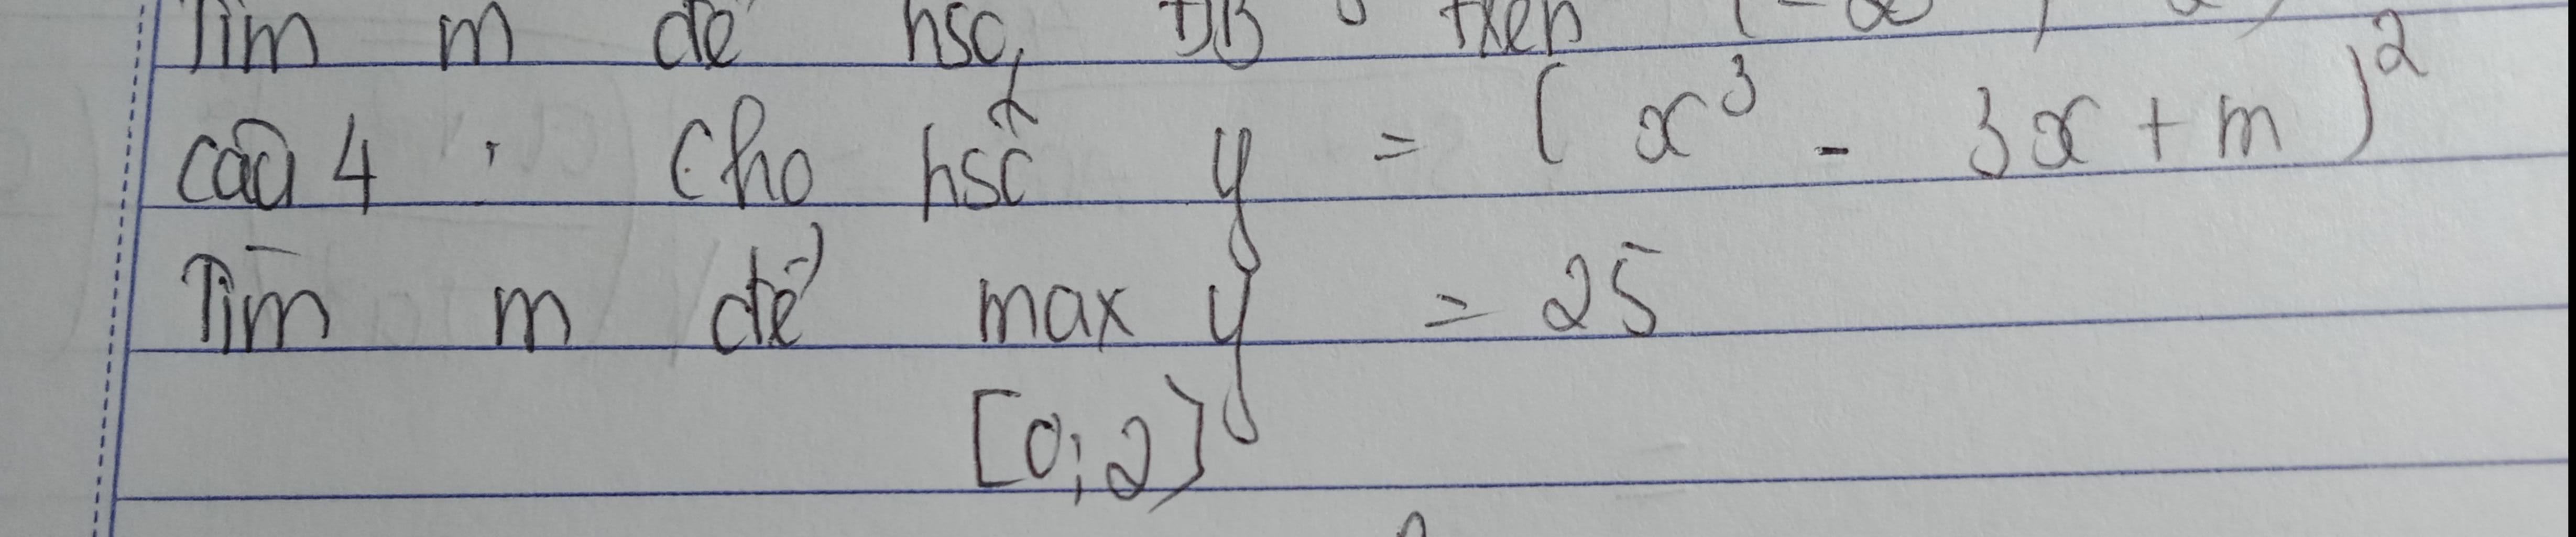 Tìm m để hsố ĐB trên (-∞
câu 4 : Cho hsố y = (x³ - 3x + m)²
Tìm m để max y = 25
[0;2]